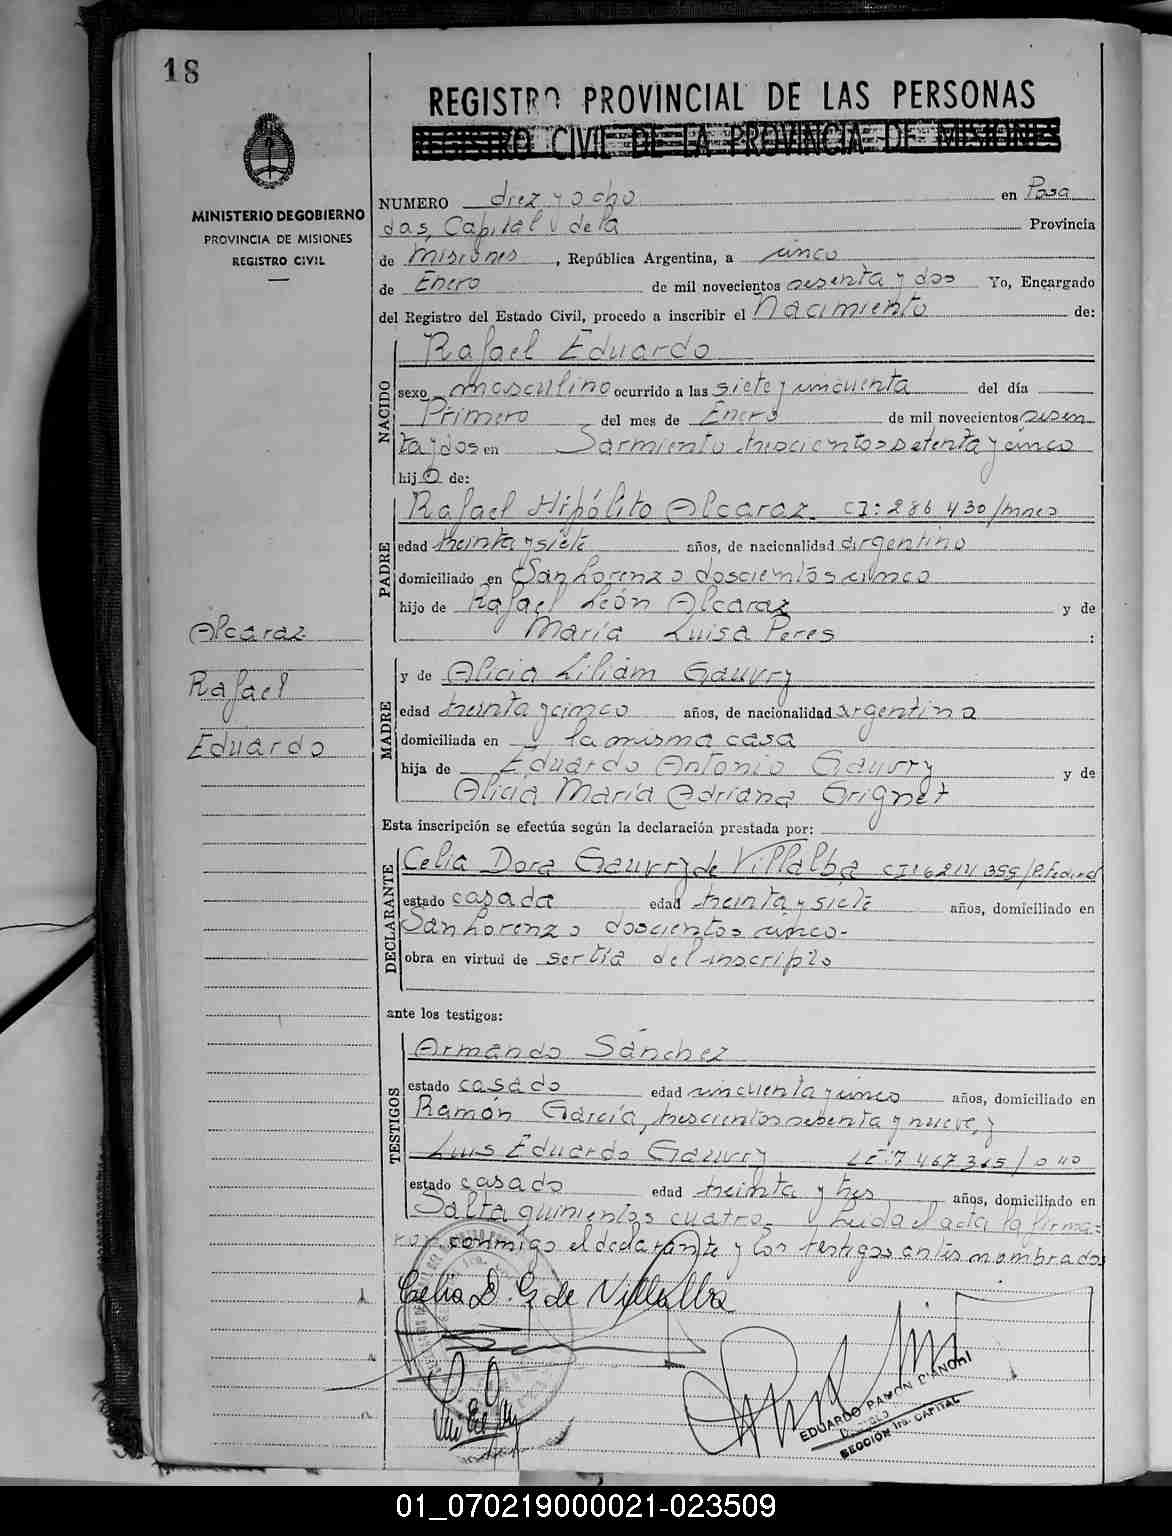 18
REGISTRO PROVINCIAL DE LAS PERSONAS
REGISTRO CIVIL DE LA PROVINCIA DE MISIONES
MINISTERIO DE GOBIERNO
PROVINCIA DE MISIONES
REGISTRO CIVIL
NUMERO diez y ocho en Posa
das, Capital de la Provincia
de Misiones, República Argentina, a cinco
de Enero de mil novecientos sesenta y dos Yo, Encargado
del Registro del Estado Civil, procedo a inscribir el Nacimiento de:
NACIDO
Rafael Eduardo
sexo masculino ocurrido a las siete y cincuenta del día
Primero del mes de Enero de mil novecientos sesen
ta y dos en Sarmiento trescientos setenta y cinco
hijo de:
PADRE
Rafael Hipólito Alcaraz CI: 286 430/Mnes
edad treinta y siete años, de nacionalidad argentino
domiciliado en San Lorenzo doscientos cinco
hijo de Rafael León Alcaraz y de
María Luisa Peres :
Alcaraz
Rafael
Eduardo
MADRE
y de Alicia Liliam Gauvry
edad treinta y cinco años, de nacionalidad argentina
domiciliada en la misma casa
hija de Eduardo Antonio Gauvry y de
Alicia María Adriana Grignet
Esta inscripción se efectúa según la declaración prestada por:
DECLARANTE
Celia Dora Gauvry de Villalba CI: 6214 355/P.Federal
estado casada edad treinta y siete años, domiciliado en
San Lorenzo doscientos cinco.-
obra en virtud de ser tía del inscripto
ante los testigos:
TESTIGOS
Armando Sánchez
estado casado edad cincuenta y cinco años, domiciliado en
Ramón García, trescientos sesenta y nueve, y
Luis Eduardo Gauvry LE: 7 467 365/
estado casado edad treinta y tres años, domiciliado en
Salta quinientos cuatro. y leida el acta la firma=
ron conmigo el declarante y los testigos antes nombrados
Celia D. G. de Villalba
EDUARDO RAMON BIANCHI
SECCIÓN 1ra. CAPITAL
01_070219000021-023509